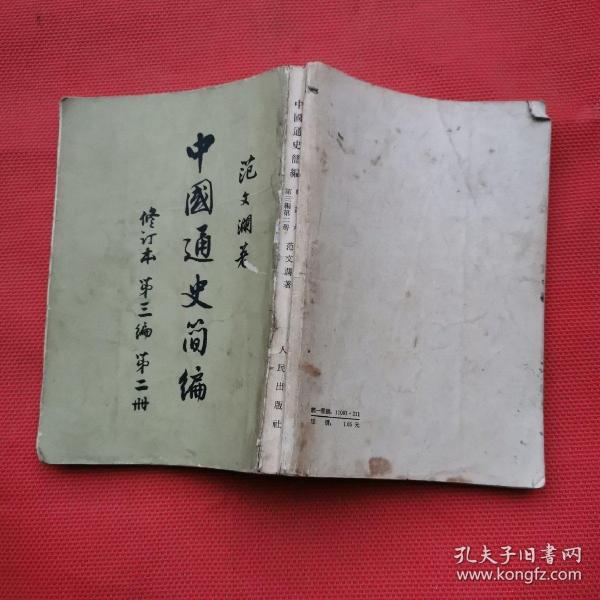 范文澜著
中國通史简编
修订本 第三编 第二册
中國通史簡編
第三編第二册
范文瀾著
人民出版社
統一書號：11001·211
定價：1.05元
孔夫子旧书网
www.kongfz.com